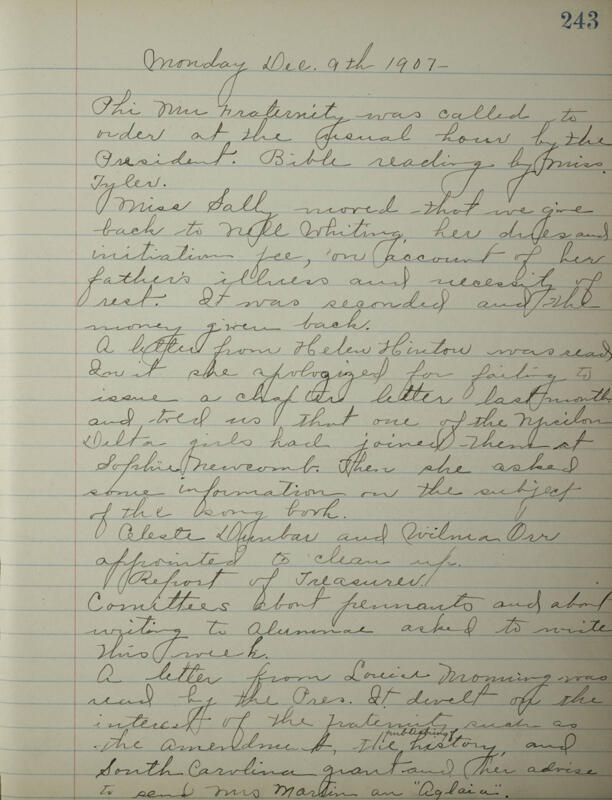 243
Monday Dec. 9th 1907-
Phi Mu Fraternity was called to
order at the usual hour by the
President. Bible reading by Miss.
Tyler.
Miss Sally moved that we give
back to Nell Whiting, her dues and
initiation fee, on account of her
father's illness and necessity of
rest. It was seconded and the
money given back.
A letter from Helen Hinton was read
In it she apologized for failing to
issue a chapter letter last month
and told us that one of the Upsilon
Delta girls had joined them at
Sophie Newcomb. Then she asked
some information on the subject
of the song book.
Celeste Dunbar and Wilma Orr
appointed to clean up.
Report of Treasurer.
Comittees about pennants and about
writing to alumnae asked to write
this week.
A letter from Louise Monning was
read by the Pres. It dwelt on the
interest of the fraternity such as
the amendment, the publishing history, and
South Carolina grant and her advise
to send Mrs Martin an "Aglaia".